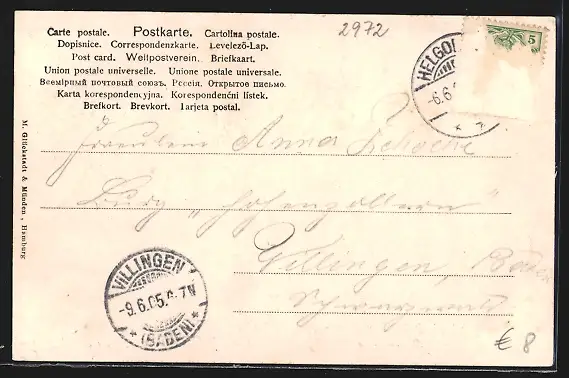 Carte postale. Postkarte. Cartolina postale.
Dopisnice. Correspondenzkarte. Levelező-Lap.
Post card. Weltpostverein. Briefkaart.
Union postale universelle. Unione postale universale.
Всемірный почтовый союзъ. Россія. Открытое письмо.
Karta korespondencyjna. Korespondenční lístek.
Brefkort. Brevkort. Tarjeta postal.
2972
HELGOL
-6.6
5
M. Glückstadt & Münden, Hamburg
Fräulein Anna
Burg „Hohenzollern"
Villingen, Baden
Schwarzwald
VILLINGEN
-9.6.05. 7V
* (BADEN) *
€ 8